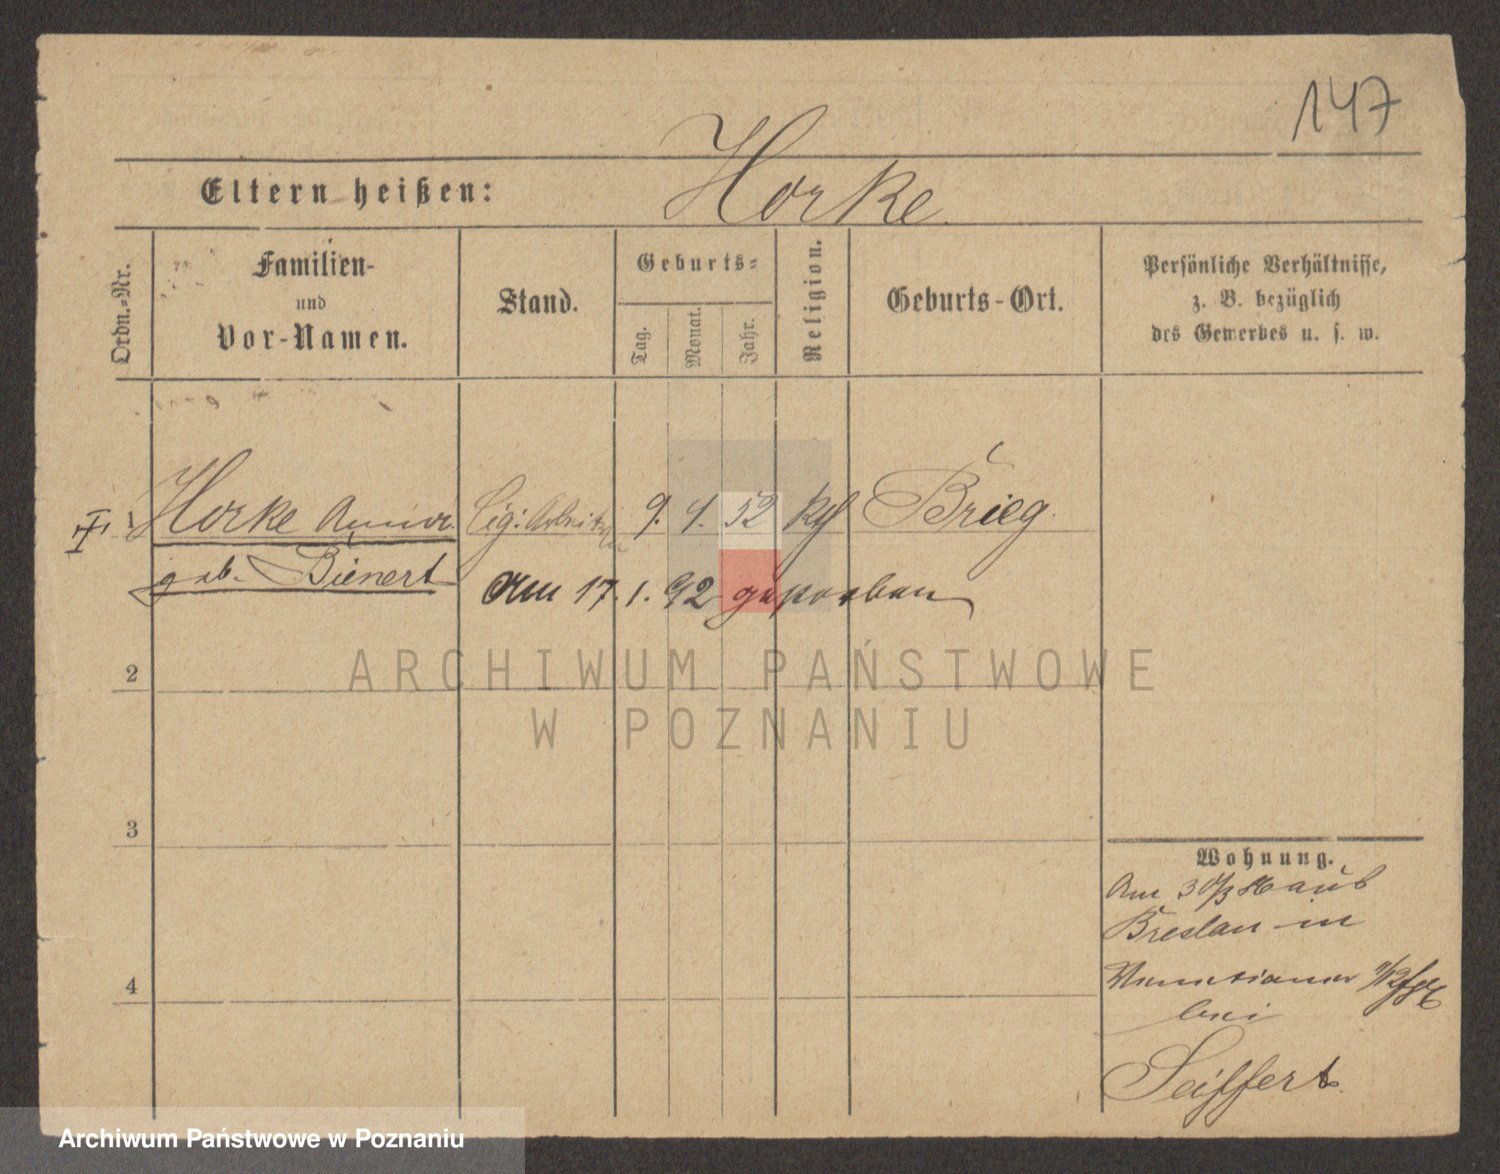 147
Eltern heißen: Horke
Ordn.-Nr.
Familien-
und
Vor-Namen.
Stand.
Geburts-
Tag.
Monat.
Jahr.
Religion.
Geburts-Ort.
Persönliche Verhältnisse,
z. B. bezüglich
des Gewerbes u. s. w.
1 Horke Anna Cig: Arbeiterin 9. 4. 52 kth Brieg.
geb. Bienert Am 17. 1. 92 gestorben
ARCHIWUM PAŃSTWOWE
W POZNANIU
2
3
4
Wohnung.
Am
Breslau in
bei
Seiffert.
Archiwum Państwowe w Poznaniu